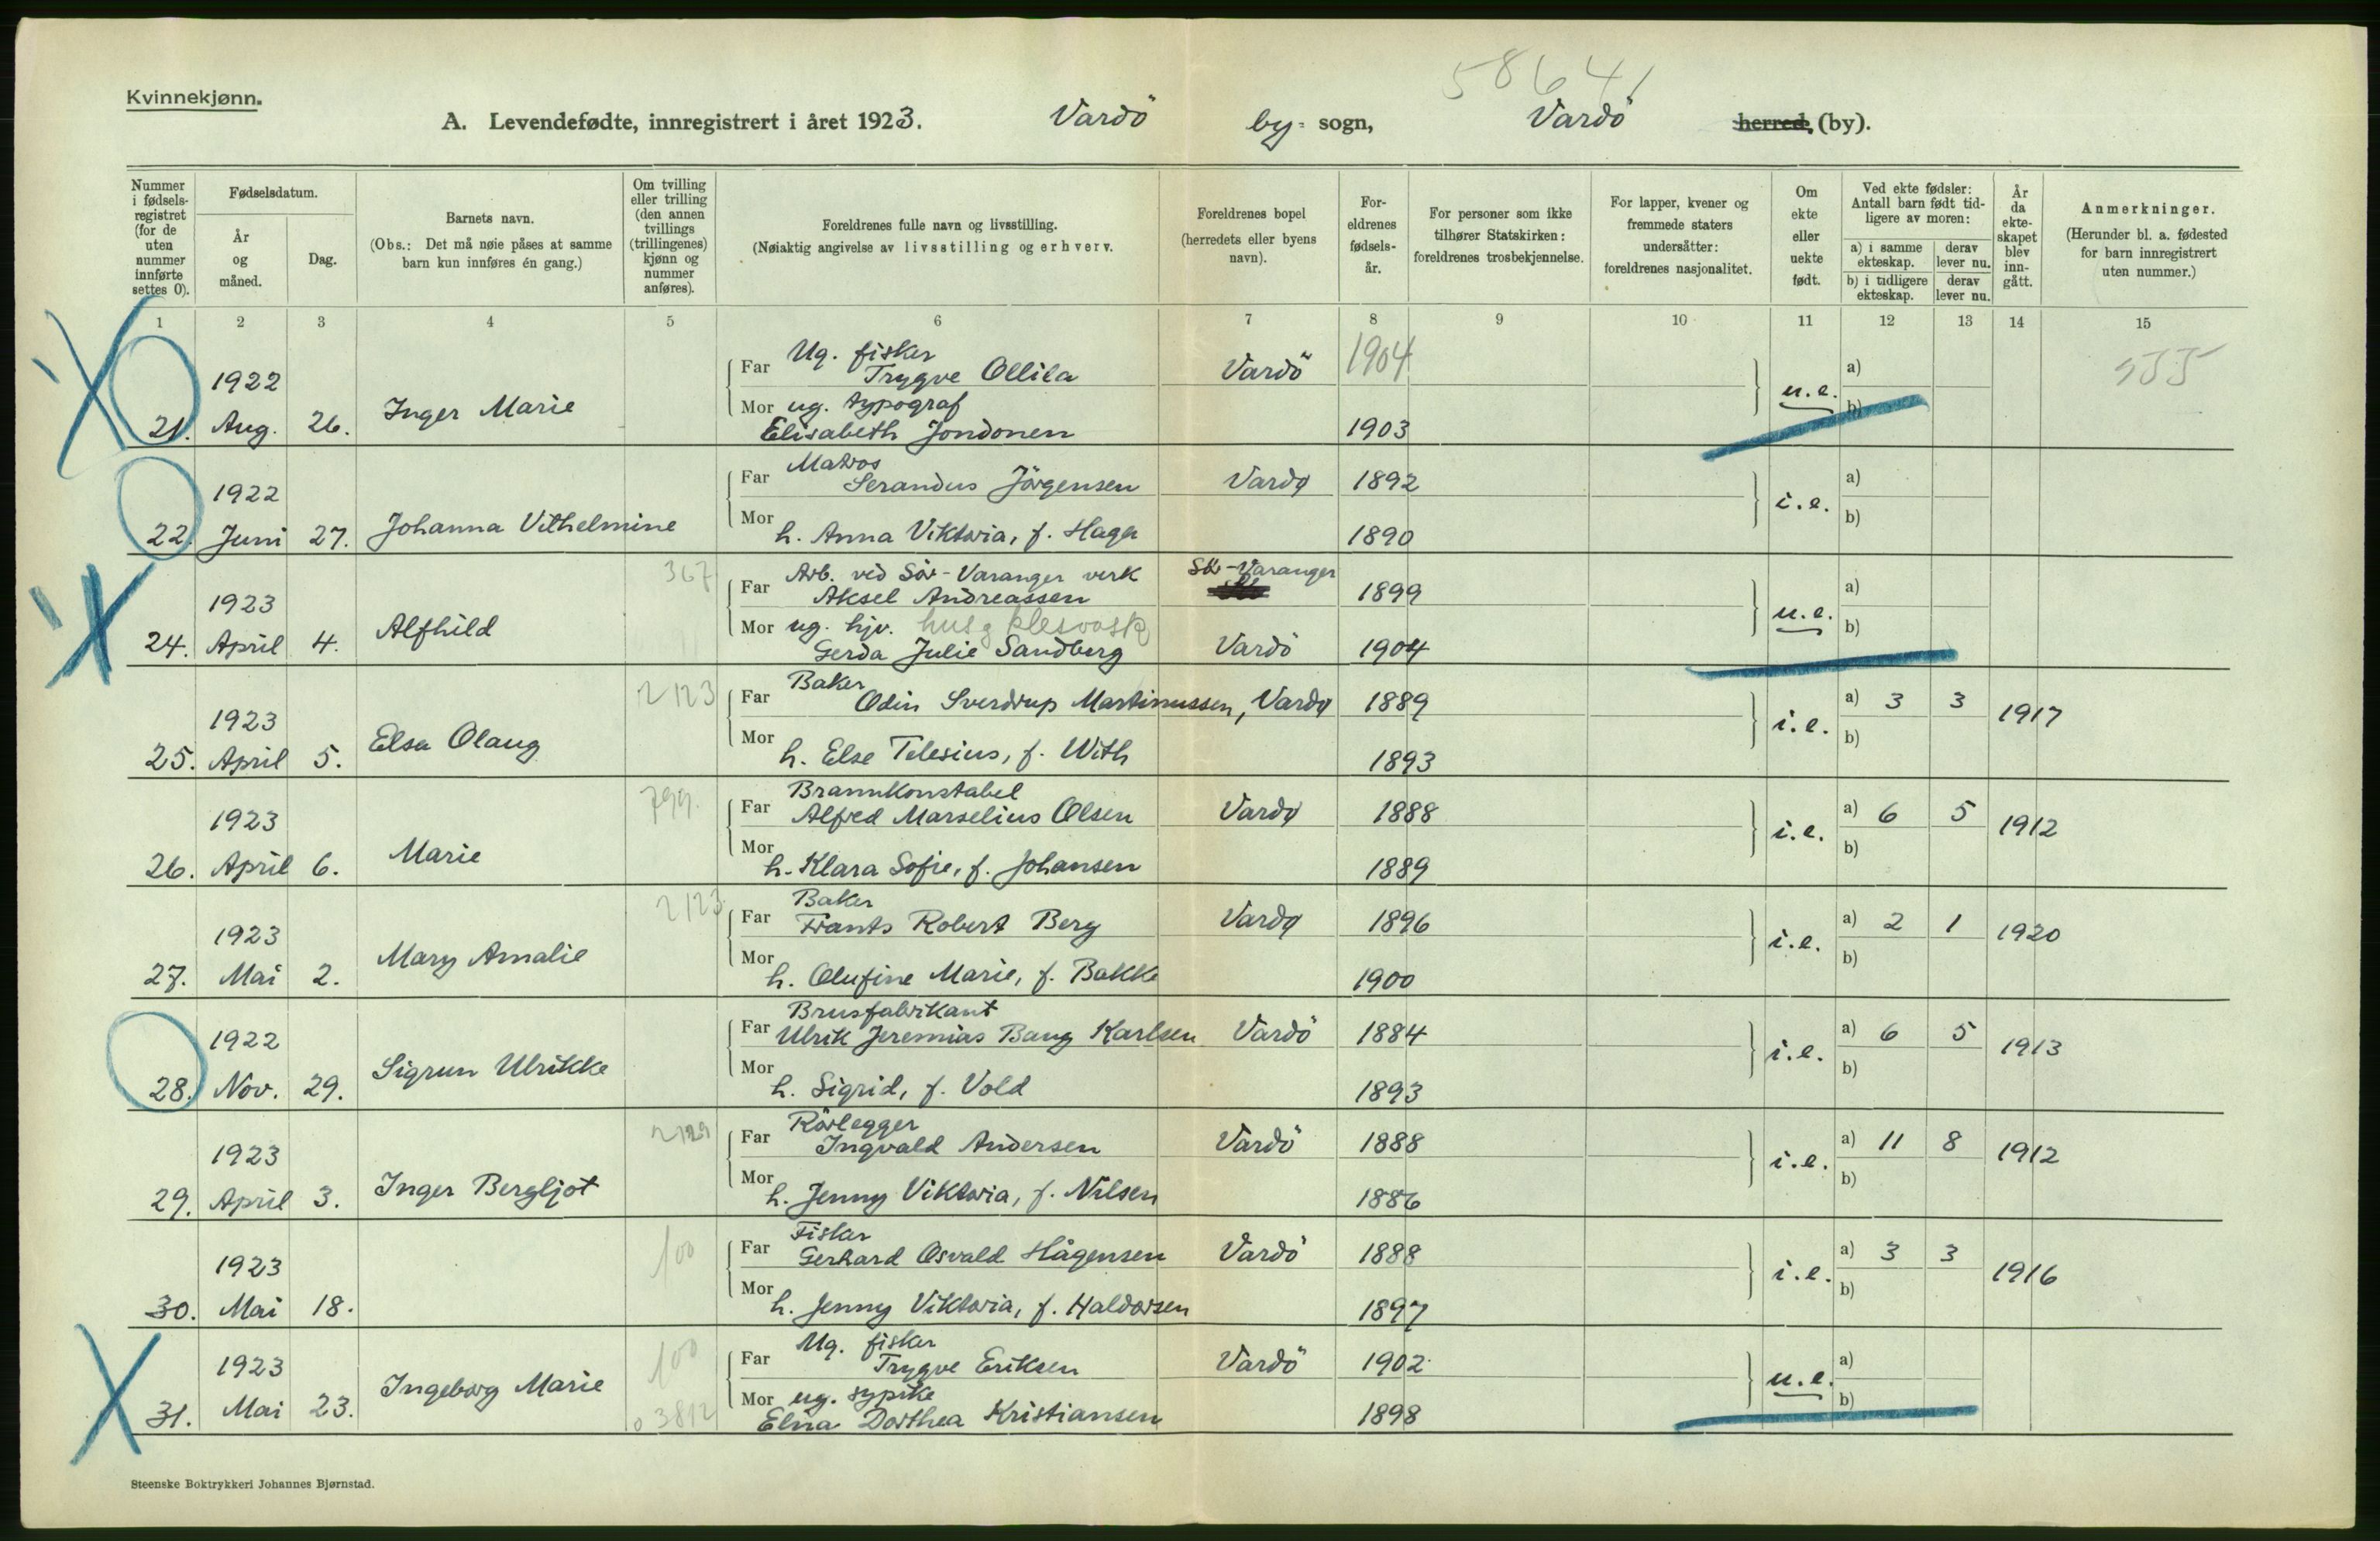 58641
Kvinnekjønn.
A. Levendefødte, innregistrert i året 1923. Vardö by- sogn, Vardö herred, (by).
Nummer i fødselsregistret (for de uten nummer innførte settes 0).
Fødselsdatum.
År og måned.
Dag.
Barnets navn.
(Obs.: Det må nøie påses at samme barn kun innføres én gang.)
Om tvilling eller trilling (den annen tvillings (trillingenes) kjønn og nummer anføres).
Foreldrenes fulle navn og livsstilling.
(Nøiaktig angivelse av livsstilling og erhverv.
Foreldrenes bopel (herredets eller byens navn).
Foreldrenes fødselsår.
For personer som ikke tilhører Statskirken: foreldrenes trosbekjennelse.
For lapper, kvener og fremmede staters undersåtter: foreldrenes nasjonalitet.
Om ekte eller uekte født.
Ved ekte fødsler: Antall barn født tidligere av moren:
a) i samme ekteskap. derav lever nu.
b) i tidligere ekteskap. derav lever nu.
År da ekteskapet blev inngått.
Anmerkninger.
(Herunder bl. a. fødested for barn innregistrert uten nummer.)
1 2 3 4 5 6 7 8 9 10 11 12 13 14 15
1922 Far Ug. fisker
Trygve Ollila Vardö 1904 a)
21. Aug. 26. Inger Marie Mor ug. typograf u.e. b)
Elisabeth Jondonen 1903
1922 Far Matros
Serandus Jörgensen Vardø 1892 a)
22. Juni 27. Johanna Vilhelmine Mor i.e. b)
h. Anna Viktoria, f. Hage 1890
367 Far Arb. ved Sör-Varanger verk Sör-Varanger
1923 Aksel Andreassen 1899 a)
24. April 4. Alfhild Mor ug. hjv. u.e. b)
Gerda Julie Sandberg Vardö 1904
2123 Far Baker
1923 Odin Sverdrup Martinussen, Vardø 1889 a) 3 3 1917
25. April 5. Elsa Olaug Mor i.e. b)
h. Else Telesius, f. With 1893
799. Far Brannkonstabel
1923 Alfred Marselius Olsen Vardø 1888 a) 6 5 1912
26. April 6. Marie Mor i.e. b)
h. Klara Sofie, f. Johansen 1889
2123 Far Baker
1923 Frants Robert Berg Vardø 1896 a) 2 1 1920
27. Mai 2. Mary Amalie Mor i.e. b)
h. Olufine Marie, f. Bakke 1900
Far Brusfabrikant
1922 Ulrik Jeremias Bang Karlsen Vardö 1884 a) 6 5 1913
28. Nov. 29. Sigrun Ulrikke Mor i.e. b)
h. Sigrid, f. Vold 1893
Far Rörlegger
1923 Ingvald Andersen Vardö 1888 a) 11 8 1912
29. April 3. Inger Bergljot Mor i.e. b)
h. Jenny Viktoria, f. Nilsen 1886
100 Far Fisker
1923 Gerhard Osvald Hågensen Vardö 1888 a) 3 3 1916
30. Mai 18. Mor i.e. b)
h. Jenny Viktoria, f. Haldorsen 1897
100 Far Ug. fisker
1923 Trygve Eriksen Vardö 1902 a)
31. Mai 23. Ingeborg Marie Mor ug. sypike u.e. b)
03812 Elna Dorthea Kristiansen 1898
Steenske Boktrykkeri Johannes Bjørnstad.